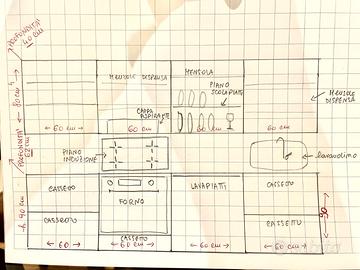 PROFONDITÀ
40 cm
MENSOLE DISPENSA
MENSOLA
PIANO
SCOLAPIATTI
MENSOLE
DISPENSA
80 cm
CAPPA
ASPIRANTE
60 cm
60 cm
60 cm
60 cm
PROFONDITÀ
PIANO
INDUZIONE
lavandino
CASSETTO
FORNO
LAVAPIATTI
CASSETTO
CASSETTO
CASSETTO
CASSETTO
90 cm
90
60
60 cm
60 cm
60